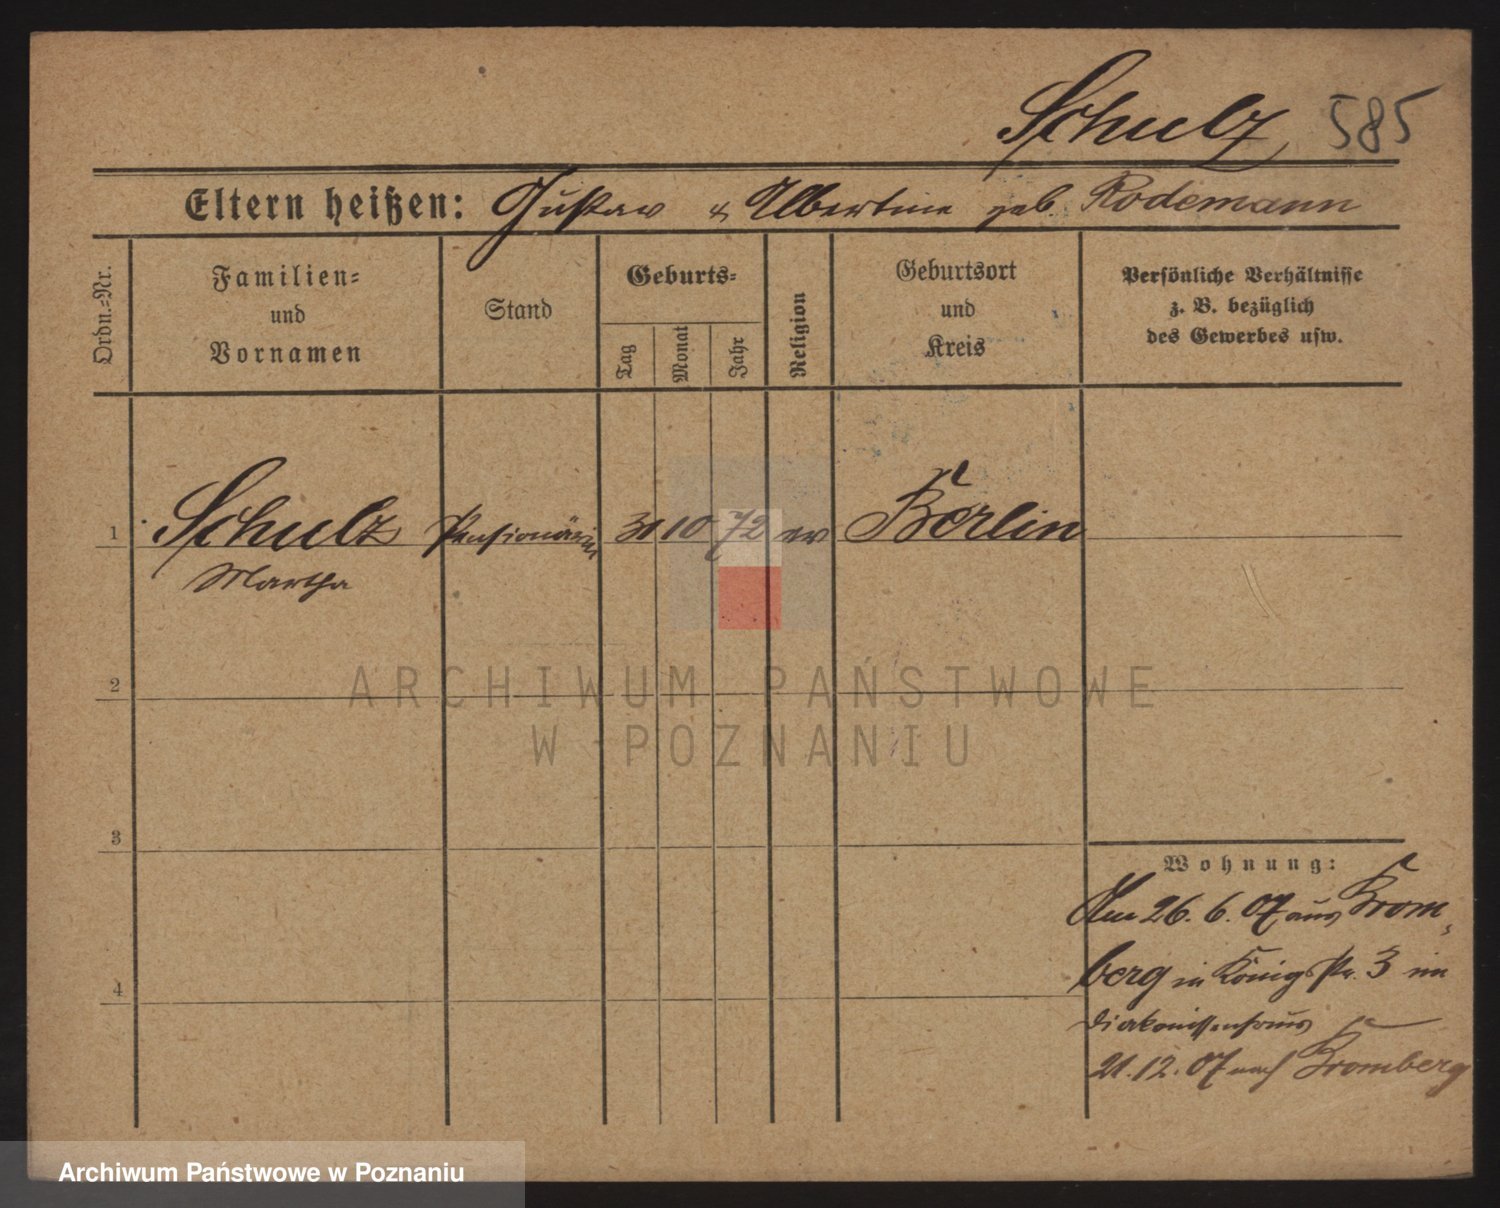 Schulz 585
Eltern heißen: Gustav & Albertine geb Rodemann
Ordn.=Nr.
Familien=
und
Vornamen
Stand
Geburts=
Tag
Monat
Jahr
Religion
Geburtsort
und
Kreis
Persönliche Verhältnisse
z. B. bezüglich
des Gewerbes usw.
1 Schulz Pensionärin 31 10 72 ev Berlin
Martha
2
ARCHIWUM PAŃSTWOWE
W POZNANIU
3
Wohnung:
Am 26. 6. 07 aus Brom=
berg in Königstr. 3 im
4
Diakonissenhaus
21. 12. 07 nach Bromberg
Archiwum Państwowe w Poznaniu